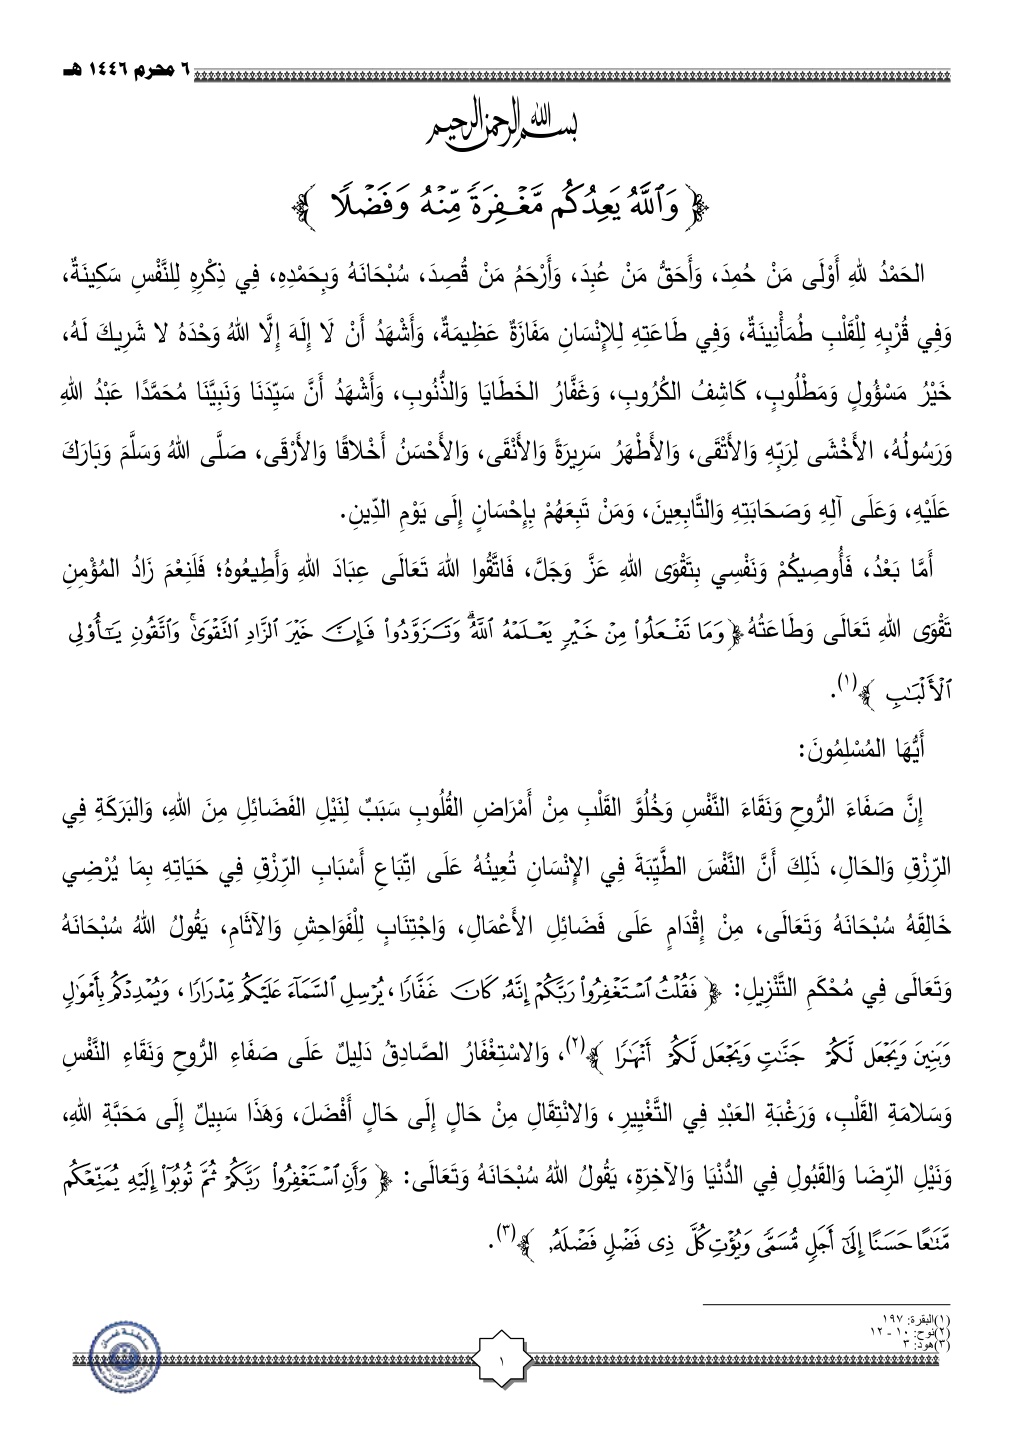 ٦ محرم ١٤٤٦ هـ
بسم الله الرحمن الرحيم
﴿ وَٱللَّهُ يَعِدُكُم مَّغْفِرَةً مِّنْهُ وَفَضْلًا ﴾
الحَمْدُ للهِ أَوْلَى مَنْ حُمِدَ، وَأَحَقُّ مَنْ عُبِدَ، وَأَرْحَمُ مَنْ قُصِدَ، سُبْحَانَهُ وَبِحَمْدِهِ، فِي ذِكْرِهِ لِلنَّفْسِ سَكِينَةٌ،
وَفِي قُرْبِهِ لِلْقَلْبِ طُمَأْنِينَةٌ، وَفِي طَاعَتِهِ لِلإِنْسَانِ مَفَازَةٌ عَظِيمَةٌ، وَأَشْهَدُ أَنْ لَا إِلَهَ إِلَّا اللهُ وَحْدَهُ لا شَرِيكَ لَهُ،
خَيْرُ مَسْؤُولٍ وَمَطْلُوبٍ، كَاشِفُ الكُرُوبِ، وَغَفَّارُ الخَطَايَا وَالذُّنُوبِ، وَأَشْهَدُ أَنَّ سَيِّدَنَا وَنَبِيَّنَا مُحَمَّدًا عَبْدُ اللهِ
وَرَسُولُهُ، الأَخْشَى لِرَبِّهِ وَالأَتْقَى، وَالأَطْهَرُ سَرِيرَةً وَالأَنْقَى، وَالأَحْسَنُ أَخْلاقًا وَالأَرْقَى، صَلَّى اللهُ وَسَلَّمَ وَبَارَكَ
عَلَيْهِ، وَعَلَى آلِهِ وَصَحَابَتِهِ وَالتَّابِعِينَ، وَمَنْ تَبِعَهُمْ بِإِحْسَانٍ إِلَى يَوْمِ الدِّينِ.
أَمَّا بَعْدُ، فَأُوصِيكُمْ وَنَفْسِي بِتَقْوَى اللهِ عَزَّ وَجَلَّ، فَاتَّقُوا اللهَ تَعَالَى عِبَادَ اللهِ وَأَطِيعُوهُ؛ فَلَنِعْمَ زَادُ المُؤْمِنِ
تَقْوَى اللهِ تَعَالَى وَطَاعَتُهُ﴿ وَمَا تَفْعَلُوا۟ مِنْ خَيْرٍ يَعْلَمْهُ ٱللَّهُ ۗ وَتَزَوَّدُوا۟ فَإِنَّ خَيْرَ ٱلزَّادِ ٱلتَّقْوَىٰ ۚ وَٱتَّقُونِ يَـٰٓأُو۟لِى
ٱلْأَلْبَـٰبِ ﴾(١).
أَيُّهَا المُسْلِمُونَ:
إِنَّ صَفَاءَ الرُّوحِ وَنَقَاءَ النَّفْسِ وَخُلُوَّ القَلْبِ مِنْ أَمْرَاضِ القُلُوبِ سَبَبٌ لِنَيْلِ الفَضَائِلِ مِنَ اللهِ، وَالبَرَكَةِ فِي
الرِّزْقِ وَالحَالِ، ذَلِكَ أَنَّ النَّفْسَ الطَّيِّبَةَ فِي الإِنْسَانِ تُعِينُهُ عَلَى اتِّبَاعِ أَسْبَابِ الرِّزْقِ فِي حَيَاتِهِ بِمَا يُرْضِي
خَالِقَهُ سُبْحَانَهُ وَتَعَالَى، مِنْ إِقْدَامٍ عَلَى فَضَائِلِ الأَعْمَالِ، وَاجْتِنَابٍ لِلْفَوَاحِشِ وَالآثَامِ، يَقُولُ اللهُ سُبْحَانَهُ
وَتَعَالَى فِي مُحْكَمِ التَّنْزِيلِ: ﴿ فَقُلْتُ ٱسْتَغْفِرُوا۟ رَبَّكُمْ إِنَّهُۥ كَانَ غَفَّارًا ، يُرْسِلِ ٱلسَّمَآءَ عَلَيْكُم مِّدْرَارًا ، وَيُمْدِدْكُم بِأَمْوَٰلٍ
وَبَنِينَ وَيَجْعَل لَّكُمْ جَنَّـٰتٍ وَيَجْعَل لَّكُمْ أَنْهَـٰرًا ﴾(٢)، وَالاسْتِغْفَارُ الصَّادِقُ دَلِيلٌ عَلَى صَفَاءِ الرُّوحِ وَنَقَاءِ النَّفْسِ
وَسَلامَةِ القَلْبِ، وَرَغْبَةِ العَبْدِ فِي التَّغْيِيرِ، وَالانْتِقَالِ مِنْ حَالٍ إِلَى حَالٍ أَفْضَلَ، وَهَذَا سَبِيلٌ إِلَى مَحَبَّةِ اللهِ،
وَنَيْلِ الرِّضَا وَالقَبُولِ فِي الدُّنْيَا وَالآخِرَةِ، يَقُولُ اللهُ سُبْحَانَهُ وَتَعَالَى: ﴿ وَأَنِ ٱسْتَغْفِرُوا۟ رَبَّكُمْ ثُمَّ تُوبُوٓا۟ إِلَيْهِ يُمَتِّعْكُم
مَّتَـٰعًا حَسَنًا إِلَىٰٓ أَجَلٍ مُّسَمًّى وَيُؤْتِ كُلَّ ذِى فَضْلٍ فَضْلَهُۥ ﴾(٣).
(١)البقرة: ١٩٧
(٢)نوح: ١٠ - ١٢
(٣)هود: ٣
١
سلطنة عمان